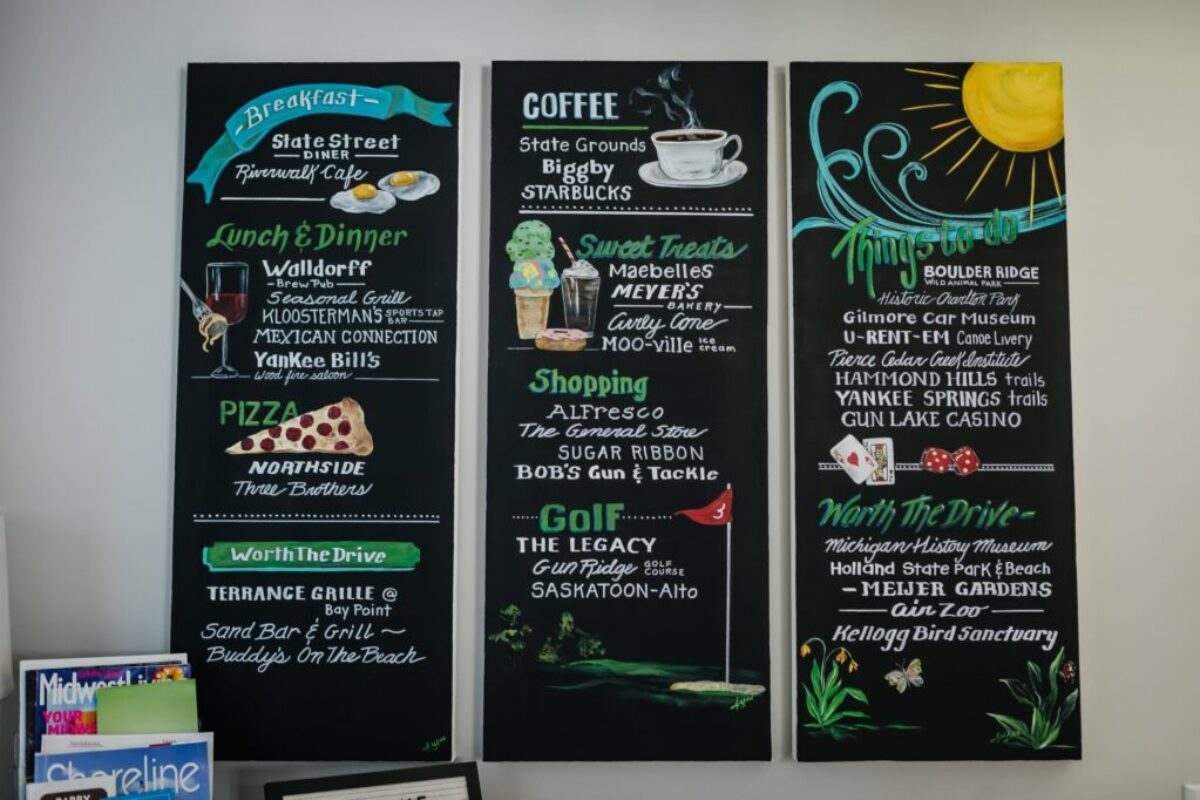 -Breakfast-
State Street
DINER
Riverwalk Cafe
Lunch & Dinner
Walldorff
-BrewPub-
Seasonal Grill
KLOOSTERMAN'S SPORTS TAP BAR
MEXICAN CONNECTION
Yankee Bill's
Wood fire saloon
PIZZA
NORTHSIDE
Three Brothers
Worth The Drive
TERRANCE GRILLE @
Bay Point
Sand Bar & Grill ~
Buddy's On The Beach
COFFEE
State Grounds
Biggby
STARBUCKS
Sweet Treats
Maebelles
MEYER'S
BAKERY
Curly Cone
MOO-ville ice cream
Shopping
ALFresco
The General Store
SUGAR RIBBON
BOB'S Gun & Tackle
Golf
3
THE LEGACY
Gun Ridge GOLF COURSE
SASKATOON-Alto
Things to do
BOULDER RIDGE
WILD ANIMAL PARK
Historic Charlton Park
Gilmore Car Museum
U-RENT-EM Canoe Livery
Pierce Cedar Creek Institute
HAMMOND HILLS trails
YANKEE SPRINGS trails
GUN LAKE CASINO
Worth The Drive-
Michigan History Museum
Holland State Park & Beach
- MEIJER GARDENS
air Zoo
Kellogg Bird Sanctuary
Midwest
YOUR
Shoreline